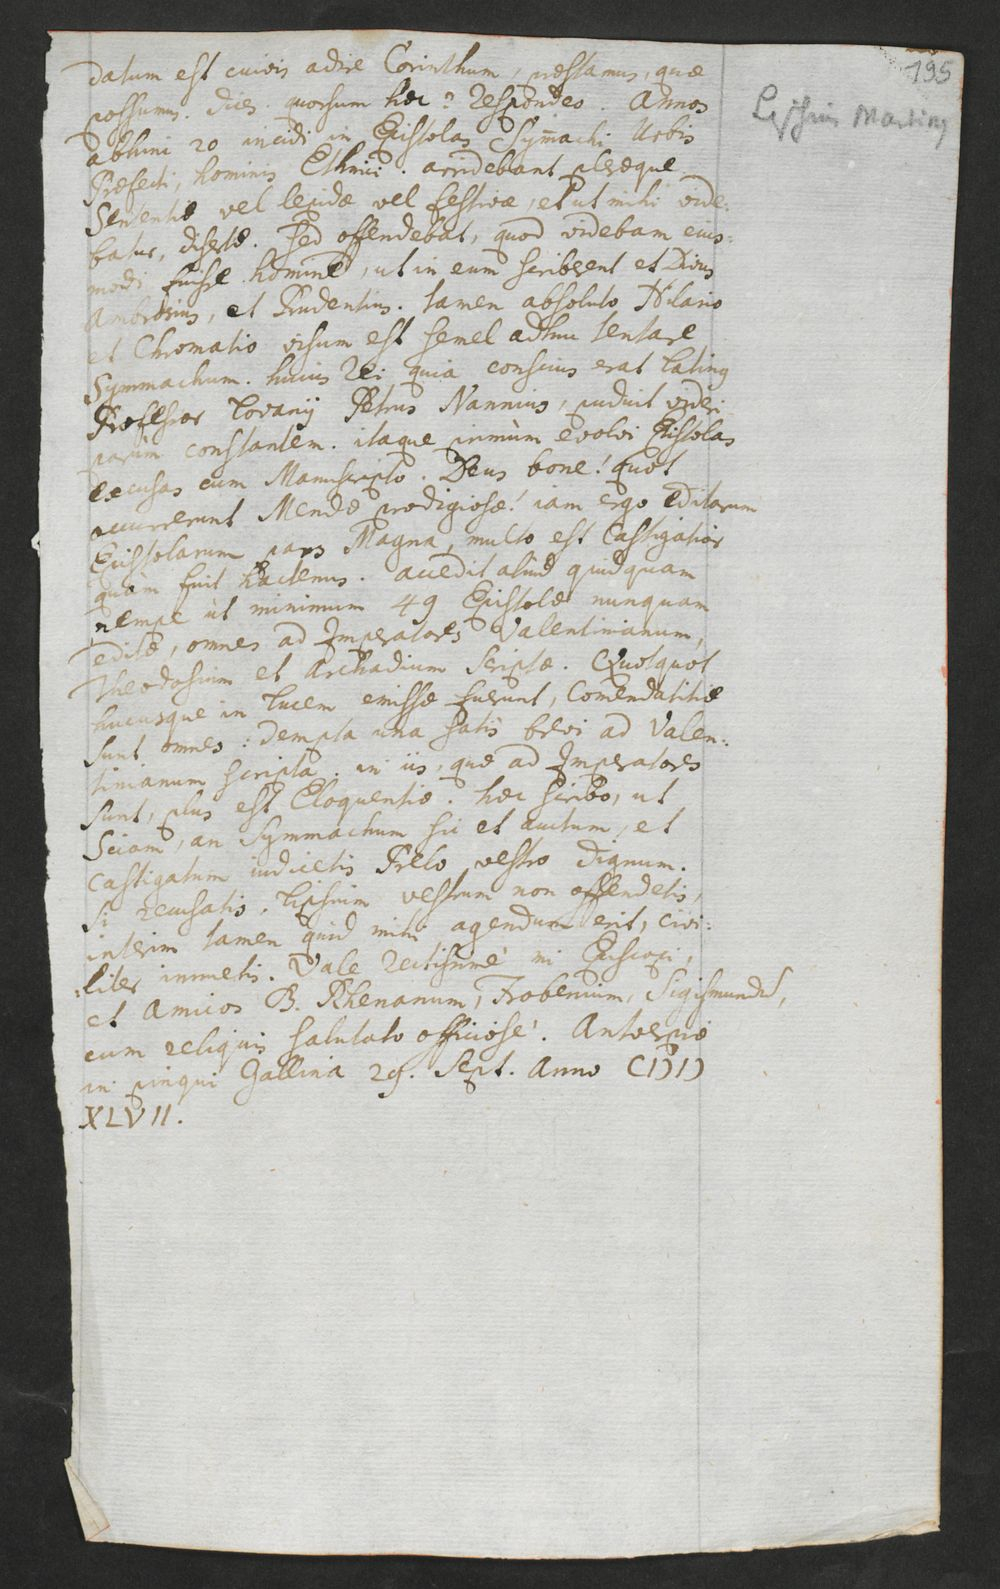 195
Lipsius Martinus
datum est cuivis adire Corinthum, præstamus, quæ
possumus. dices. quorsum hæc? respondeo. Annos
abhinc 20 incidi in Epistolas Symachi Urbis
Præfecti, hominis Ethnici. arridebant pleræque
Sententiæ vel lepidæ vel festivæ, et ut mihi vide:
batur, disertæ. sed offendebat, quod videbam eius:
modi fuisse homine, ut in eum scriberent et Divus
Ambrosius, et Prudentius. tamen absoluto Hilario
et Chromatio visum est semel adhuc tentare
Symmachum. huius rei quia conscius erat Latinus
Professor Lovanij Petrus Nannius, puduit videri
parùm constantem. itaque primùm evolvi Epistolas
excusas cum Manuscripto. Deus bone! quot
occurrerunt Mendæ prodigiosæ! iam ergo editarum
Epistolarum pars Magna, multo est Castigatior
quàm fuit hactenus. accedit aliud quidquam
nempe ut minimum 49 Epistolæ nunquam
editæ, omnes ad Imperatores Valentinianum,
Theodosium et Archadium Scriptæ. Quotquot
hucusque in lucem emissæ fuerunt, Comendatitiæ
sunt omnes: dempta una satis brevi ad Valen:
tinianum scripta. in iis, quæ ad Imperatores
sunt, plus est Eloquentiæ. hæc scribo, ut
Sciam, an Symmachum sic et auctum, et
Castigatum iudicetis Prelo vestro dignum.
si recusatis, Lipsium vestrum non offendetis,
interim tamen quid mihi agendum erit, civi:
liter innuetis. Vale rectissimè mi Episcopi,
et Amicos B. Rhenanum, Frobenium, Sigismundũ,
cum reliquis salutato officiosè. Antverpiæ
in pingui Gallina 29. Sept. Anno CIↃIↃ
XLVII.